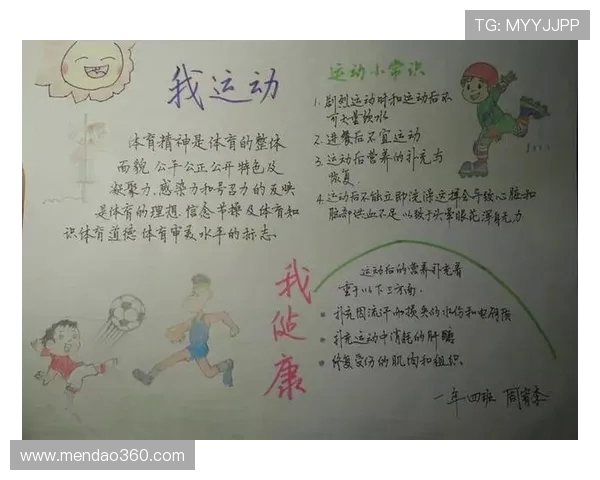 TG: MYYJJPP
我运动
体育精神是体育的整体
面貌.公平公正公开特色及
凝聚力.感染力和号召力的反映
是体育的理想.信念节操及体育知
识体育道德体育审美水平的标志.
运动小常识
1. 剧烈运动时和运动后不
可大量饮水
2. 进餐后不宜运动
3. 运动后营养的补充与
恢复.
4. 运动后不能立即洗澡这样会导致心脏和
脑部供血不足以致于头晕眼花浑身无力
我健康
运动后的营养补充着
重于以下三方面.
补充因流汗而损失的水份和电解质
补充运动中消耗的肝醣
修复受伤的肌肉和组织.
一年四班
www.mendao360.com